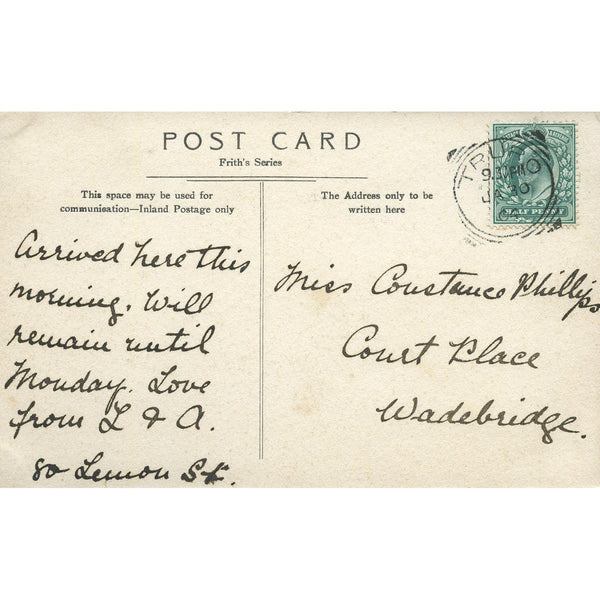 POST CARD
Frith's Series
This space may be used for
communication—Inland Postage only
The Address only to be
written here
TRURO
9.30PM
HALF PENNY
Arrived here this
morning. Will
remain until
Monday. Love
from L & A.
80 Lemon St.
Miss Constance Phillips
Court Place
Wadebridge.